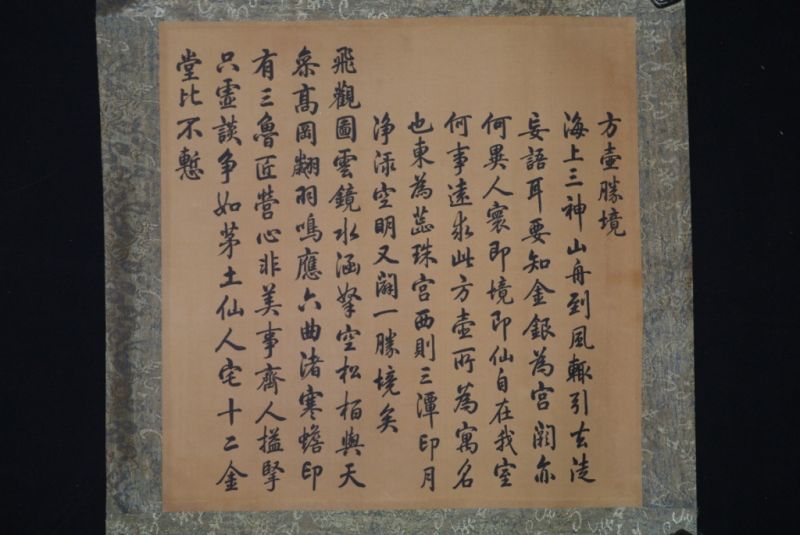 方壺勝境
海上三神山舟到風輒引去徒
妄語耳要知金銀為宮闕亦
何異人寰即境即仙自在我室
何事遠求此方壺所為寓名
也東為蕊珠宮西則三潭印月
淨淥空明又闢一勝境矣
飛觀圖雲鏡水涵拏空松栢與天
叅高岡翽羽鳴應六曲渚寒蟾印
有三魯匠營心非美事齊人搤掔
只虛談爭如茅土仙人宅十二金
堂比不慙